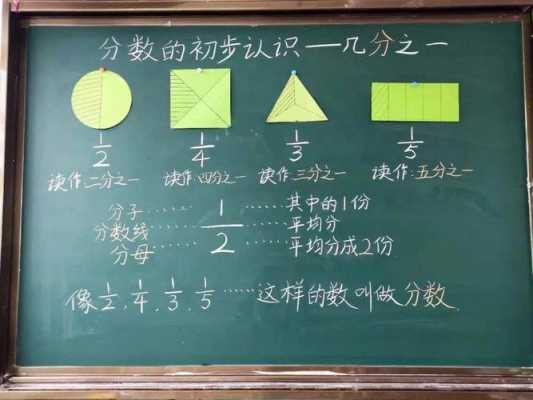 分数的初步认识—几分之一
1/2 1/4 1/3 1/5
读作:二分之一 读作:四分之一 读作:三分之一 读作:五分之一
分子······1······其中的1份
分数线······—······平均分
分母······2······平均分成2份
像1/2,1/4,1/3,1/5······这样的数叫做分数